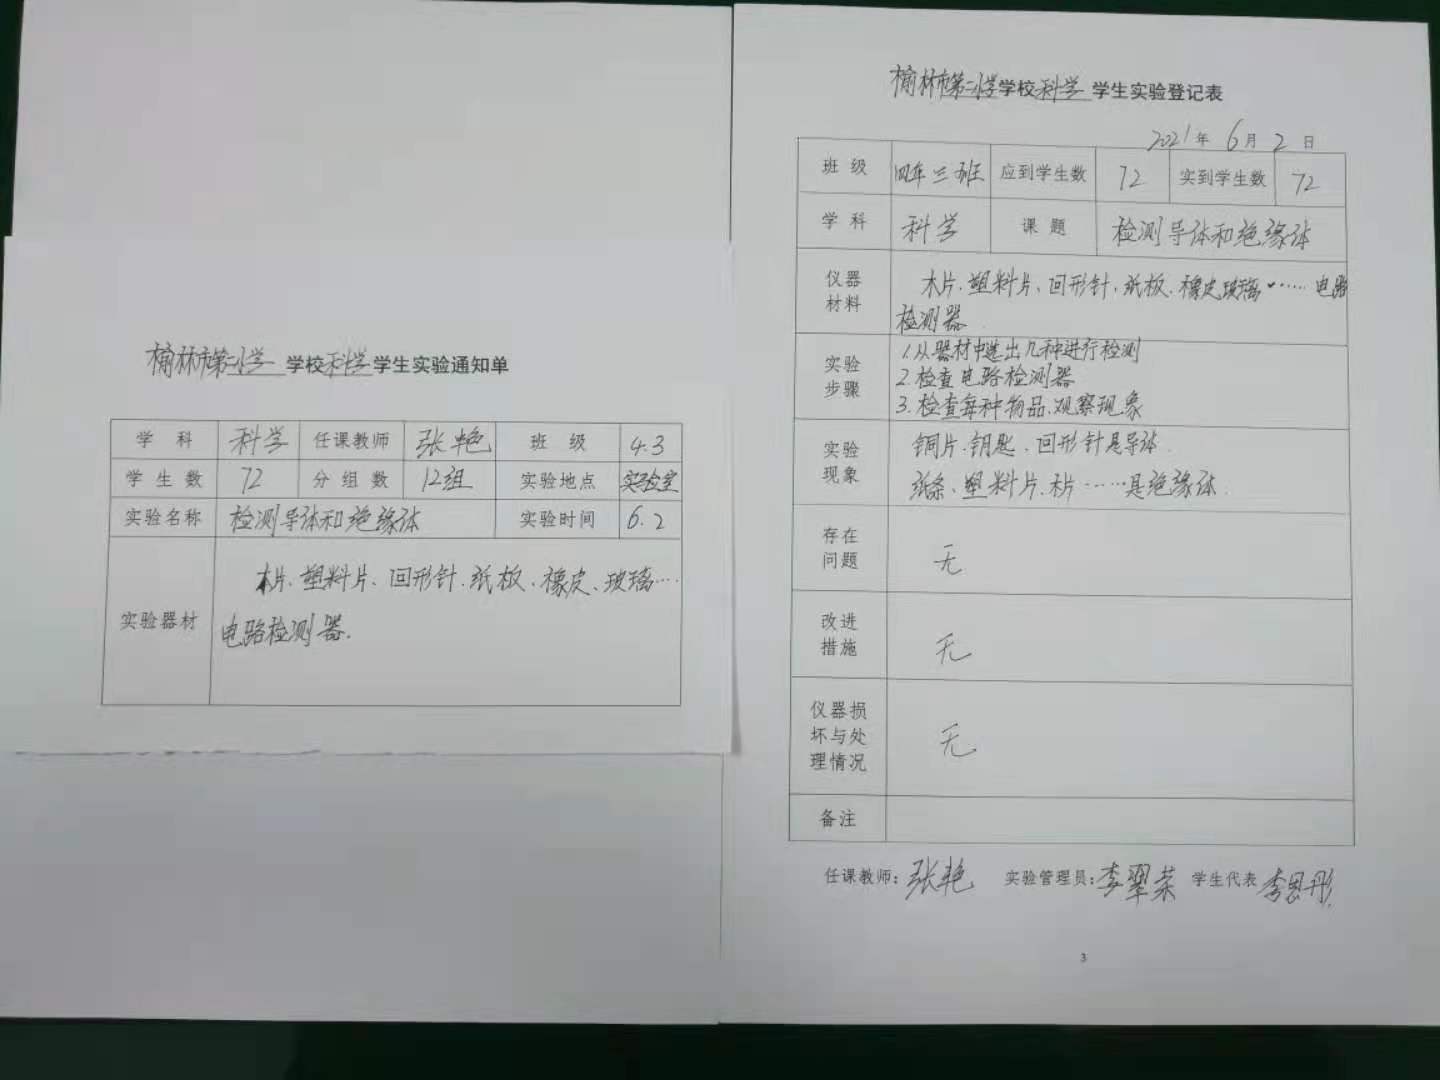 榆林市第二小学 学校科学学生实验通知单
学 科 科学 任课教师 张艳 班 级 4.3
学 生 数 72 分 组 数 12组 实验地点 实验室
实验名称 检测导体和绝缘体 实验时间 6.2
木片、塑料片、回形针、纸板、橡皮、玻璃……
实验器材
电路检测器.
榆林市第二小学学校科学 学生实验登记表
2021年 6月 2 日
班 级 四年三班 应到学生数 72 实到学生数 72
学 科 科学 课 题 检测导体和绝缘体
仪器
材料
木片、塑料片、回形针、纸板、橡皮玻璃……电路
检测器
实验
步骤
1.从器材中选出几种进行检测
2.检查电路检测器
3.检查每种物品、观察现象
实验
现象
铜片、钥匙、回形针是导体
纸条、塑料片、木片……是绝缘体.
存在
问题
无
改进
措施
无
仪器损
坏与处
理情况
无
备注
任课教师：张艳 实验管理员：李翠荣 学生代表 李思彤
3